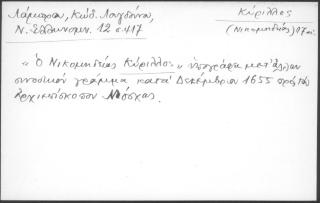 Λάμπρου, Κώδ. Λονδίνου,
Ν. Ἑλληνομν. 12 σ. 417
Κύριλλος
(Νικομηδείας) 17 αἰ.
"Ὁ Νικομηδείας Κύριλλος" ὑπογράφει μετ' ἄλλων
συνοδικόν γράμμα κατά Δεκέμβριον 1655 πρός τόν
Ἀρχιεπίσκοπον Μόσχας.